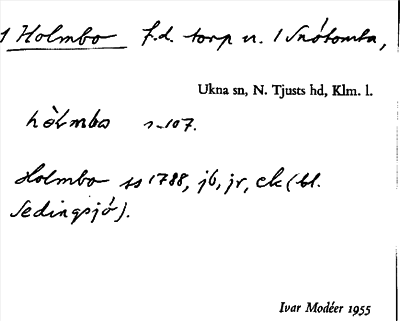 1 Holmbo f.d. torp u. 1 Snótomta,
Ukna sn, N. Tjusts hd, Klm. l.
hòlmbo s. 107.
Holmbo ss 1788, jb, jr, ek (bl.
Sedingsjó).
Ivar Modéer 1955